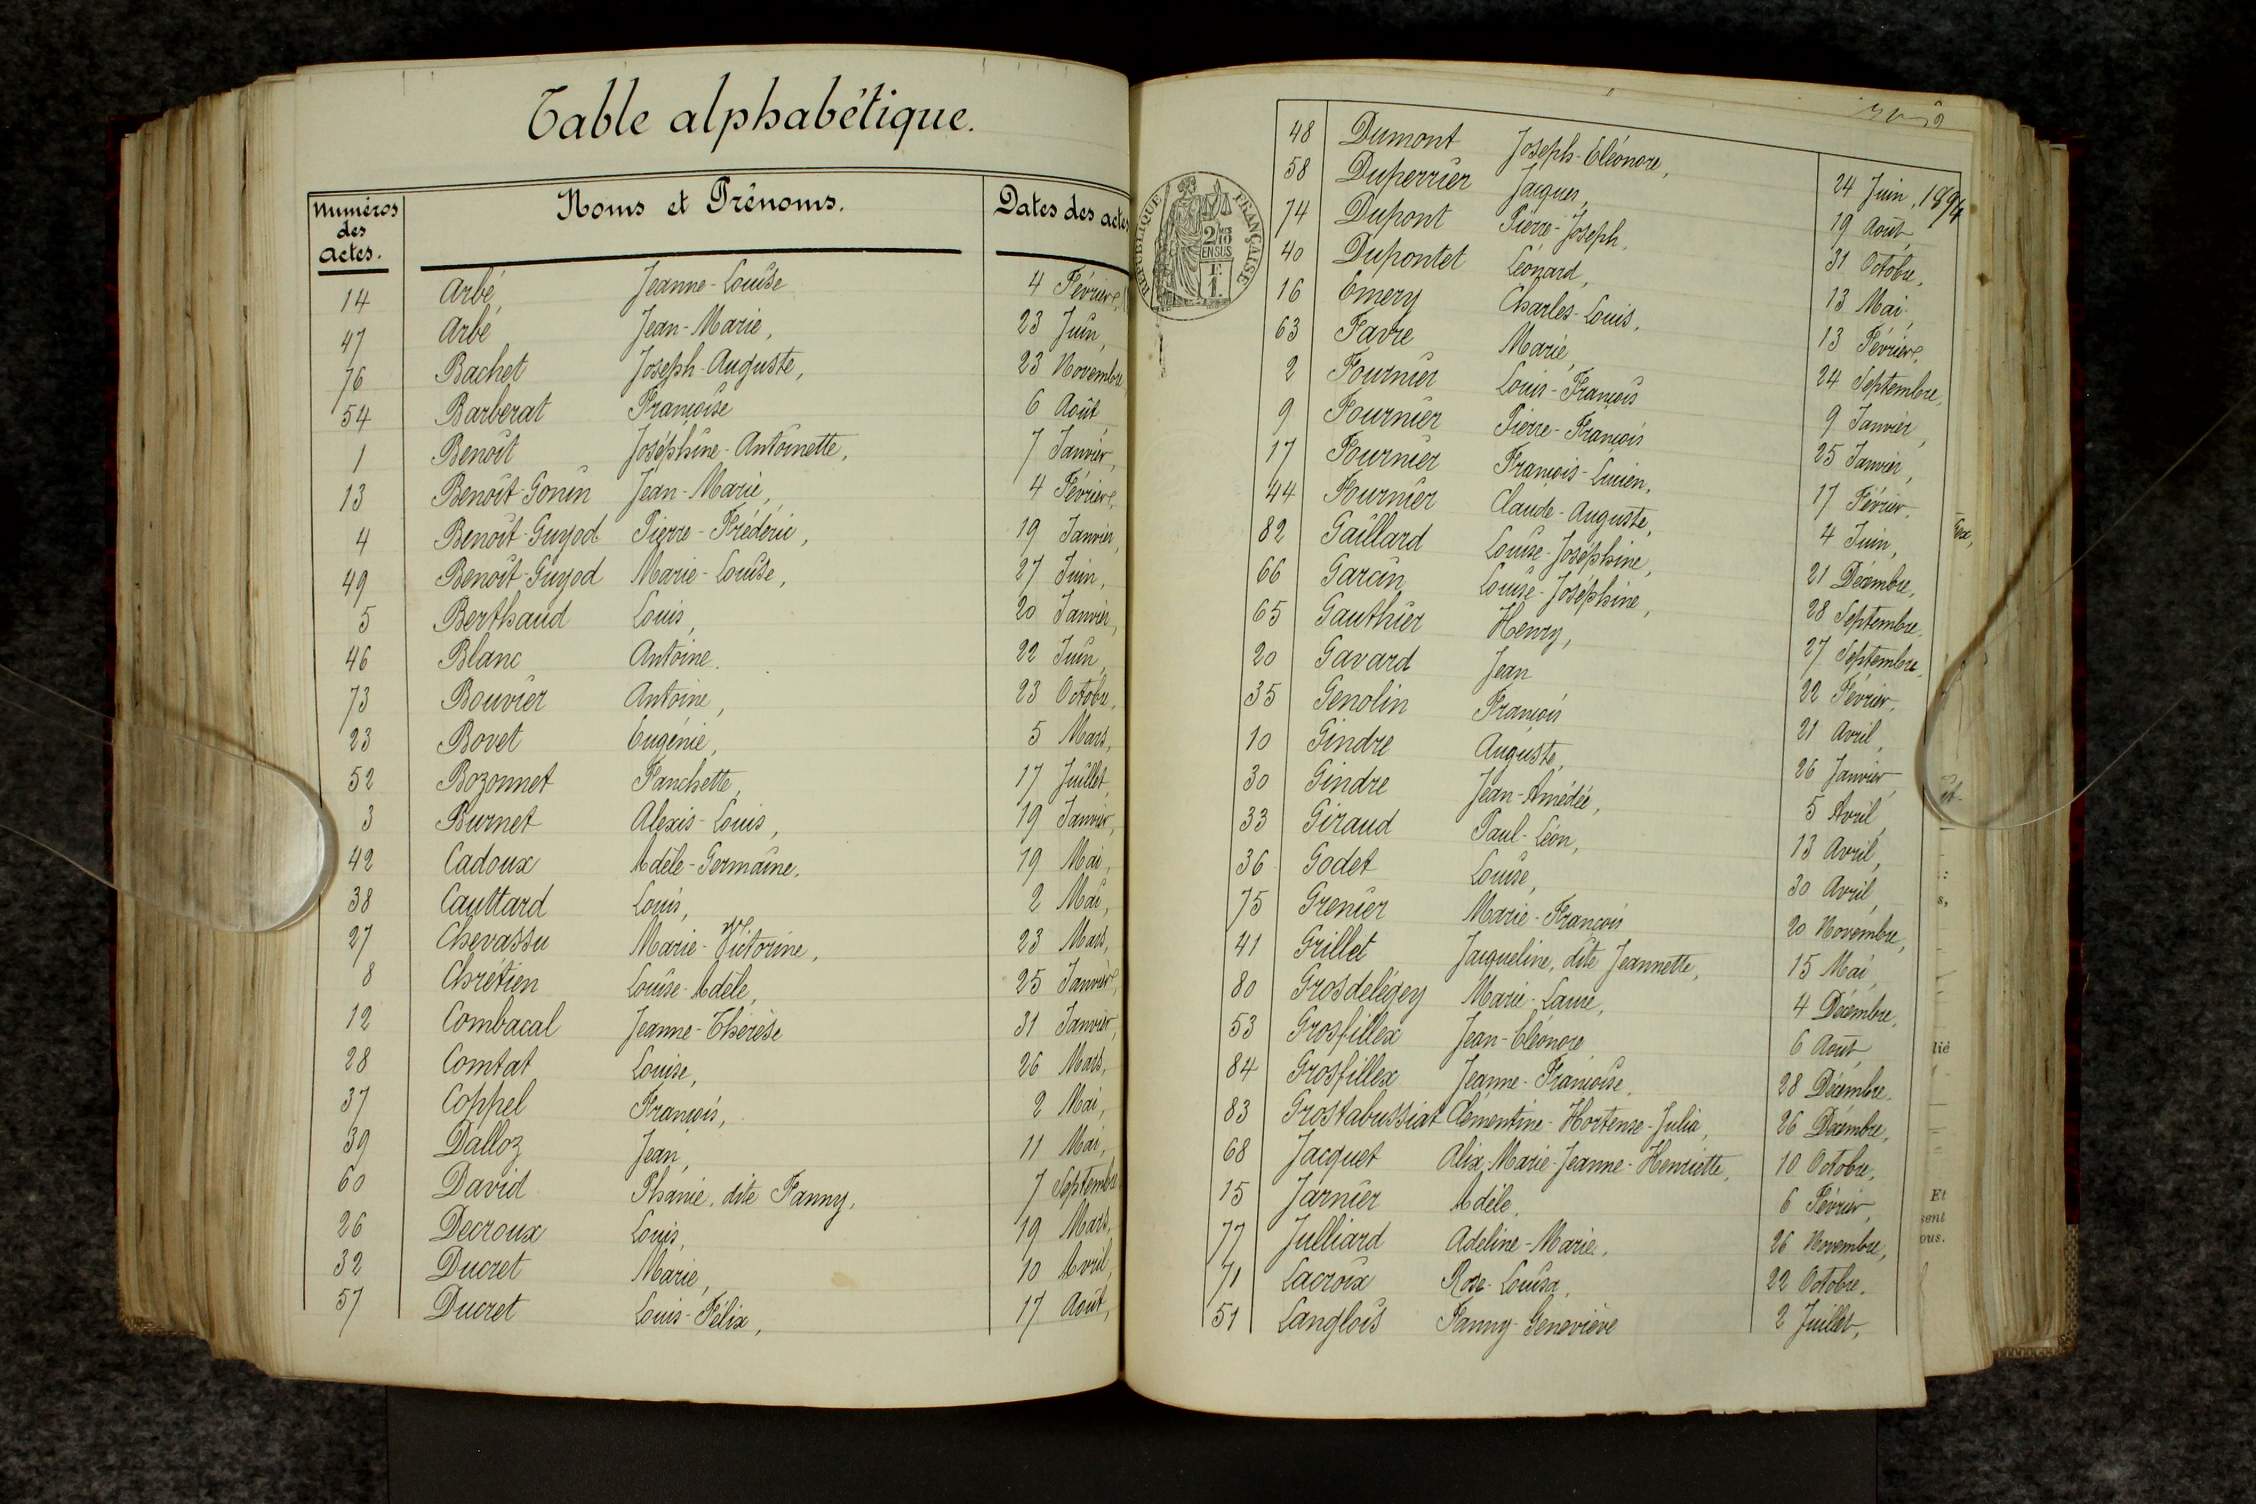 Table alphabétique.
Numéros des actes. Noms et Prénoms. Dates des actes
14 Arbé, Jeanne-Louise 4 Février,
47 Arbé Jean-Marie, 23 Juin,
76 Bachet Joseph-Auguste, 23 Novembre
54 Barberat Françoise 6 Août
1 Benoît Joséphine-Antoinette, 7 Janvier,
13 Benoît-Gonin Jean-Marie, 4 Février,
4 Benoit-Guyod Pierre-Frédéric, 19 Janvier,
49 Benoît-Guyod Marie-Louise, 27 Juin,
5 Berthaud Louis, 20 Janvier,
46 Blanc Antoine. 22 Juin,
73 Bouvier Antoine, 23 Octobre,
23 Bovet Eugénie, 5 Mars,
52 Bozonnet Fanchette, 17 Juillet,
3 Burnet Alexis-Louis, 19 Janvier,
42 Cadoux Adèle-Germaine. 19 Mai,
38 Cauttard Louis, 2 Mai,
27 Chevassu Marie-Victorine, 23 Mars,
8 Chrétien Louise-Adèle, 25 Janvier,
12 Combacal Jeanne-Thérèse 31 Janvier,
28 Comtat Louise, 26 Mars,
37 Coppel François, 2 Mai,
39 Dalloz Jean, 11 Mai,
60 David Phanie, dite Fanny, 7 Septembre
26 Decroux Louis, 19 Mars,
32 Ducret Marie, 10 Avril,
57 Ducret Louis-Félix, 17 Août,
RÉPUBLIQUE FRANÇAISE
2/10 EN SUS
F. 1.
48 Dumont Joseph-Eléonore, 24 Juin, 1894
58 Duperrier Jacques, 19 Août,
74 Dupont Pierre-Joseph, 31 Octobre,
40 Dupontet Léonard, 13 Mai,
16 Emery Charles-Louis, 13 Février,
63 Favre Marie, 24 Septembre,
2 Fournier Louis-François 9 Janvier,
9 Fournier Pierre-François 25 Janvier,
17 Fournier François-Lucien, 17 Février,
44 Fournier Claude-Auguste, 4 Juin,
82 Gaillard Louise-Joséphine, 21 Décembre,
66 Garcin Louise-Joséphine, 28 Septembre,
65 Gauthier Henry, 27 Septembre,
20 Gavard Jean 22 Février,
35 Genolin François 21 Avril,
10 Gindre Auguste, 26 Janvier,
30 Gindre Jean-Amédée, 5 Avril,
33 Giraud Paul-Léon, 13 Avril,
36 Godet Louise, 30 Avril,
75 Grenier Marie-François 20 Novembre,
41 Grillet Jacqueline, dite Jeannette, 15 Mai,
80 Grosdelégey Marie-Laure, 4 Décembre,
53 Grosfillex Jean-Eléonore 6 Août,
84 Grosfillex Jeanne-Françoise, 28 Décembre.
83 Grostabussiat Clémentine-Hortense-Julia, 26 Décembre,
68 Jacquet Alix Marie-Jeanne-Henriette, 10 Octobre,
15 Jarnier Adèle, 6 Février,
77 Julliard Adeline-Marie, 26 Novembre,
71 Lacroix Rose-Louisa, 22 Octobre.
51 Langlois Fanny-Geneviève 2 Juillet,
Et
ous.